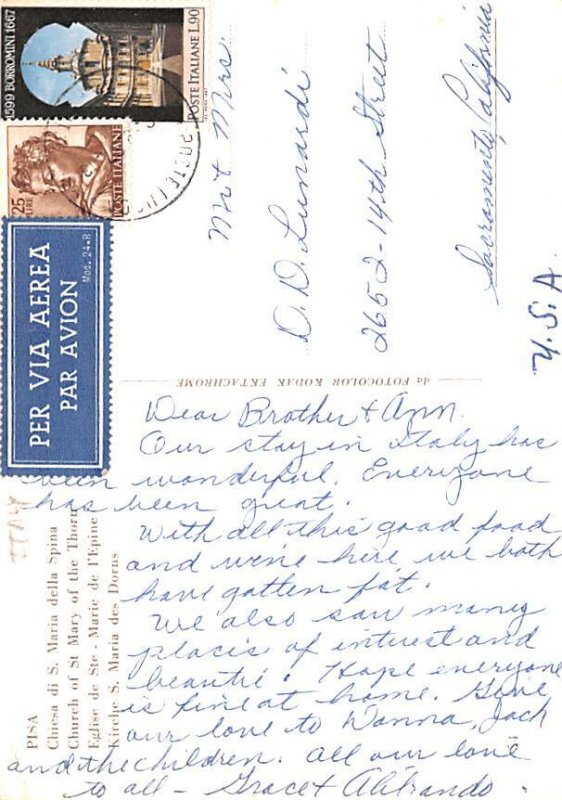 1599 BORROMINI 1667
POSTE ITALIANE L.90
25
LIRE
POSTE ITALIANE
PER VIA AEREA
PAR AVION
Mod. 24-R
Mr & Mrs.
D. D. Lunardi
2652-14th Street
Sacramento, California
U.S.A.
da FOTOCOLOR KODAK EKTACHROME
ITALY
PISA
Chiesa di S. Maria della Spina
Church of St Mary of the Thorn
Eglise de Ste - Marie de l'Epine
Kirche S. Maria des Dorns
Dear Brother & Ann.
Our stay in Italy has
been wonderful. Everyone
has been great.
With all this good food
and wine here we both
have gotten fat.
We also saw many
placis of interest and
beautie. Hope everyone
is fine at home. Give
our love to Wanna, Jack
and the children. All our love
to all - Grace & Alitrando.